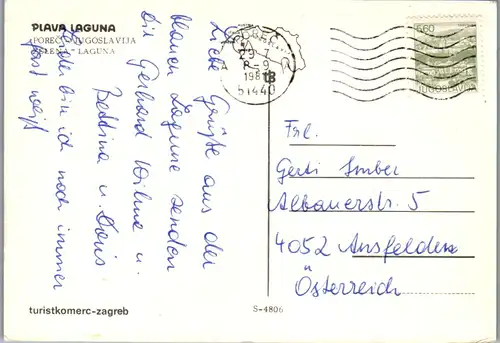 PLAVA LAGUNA
POREČ - JUGOSLAVIJA
ZELENA - LAGUNA
Liebe Grüße aus der
blauen Lagune senden
Dir Gerhard Wilma u.
Bettina u. Doris
Leider bin ich noch immer
ganz weiß
turistkomerc-zagreb
S-4806
29. 7.
8-9
198
51440
5,60
JUGOSLAVIJA
Frl.
Gerti
Albauerstr. 5
4052 Ansfelden
Österreich